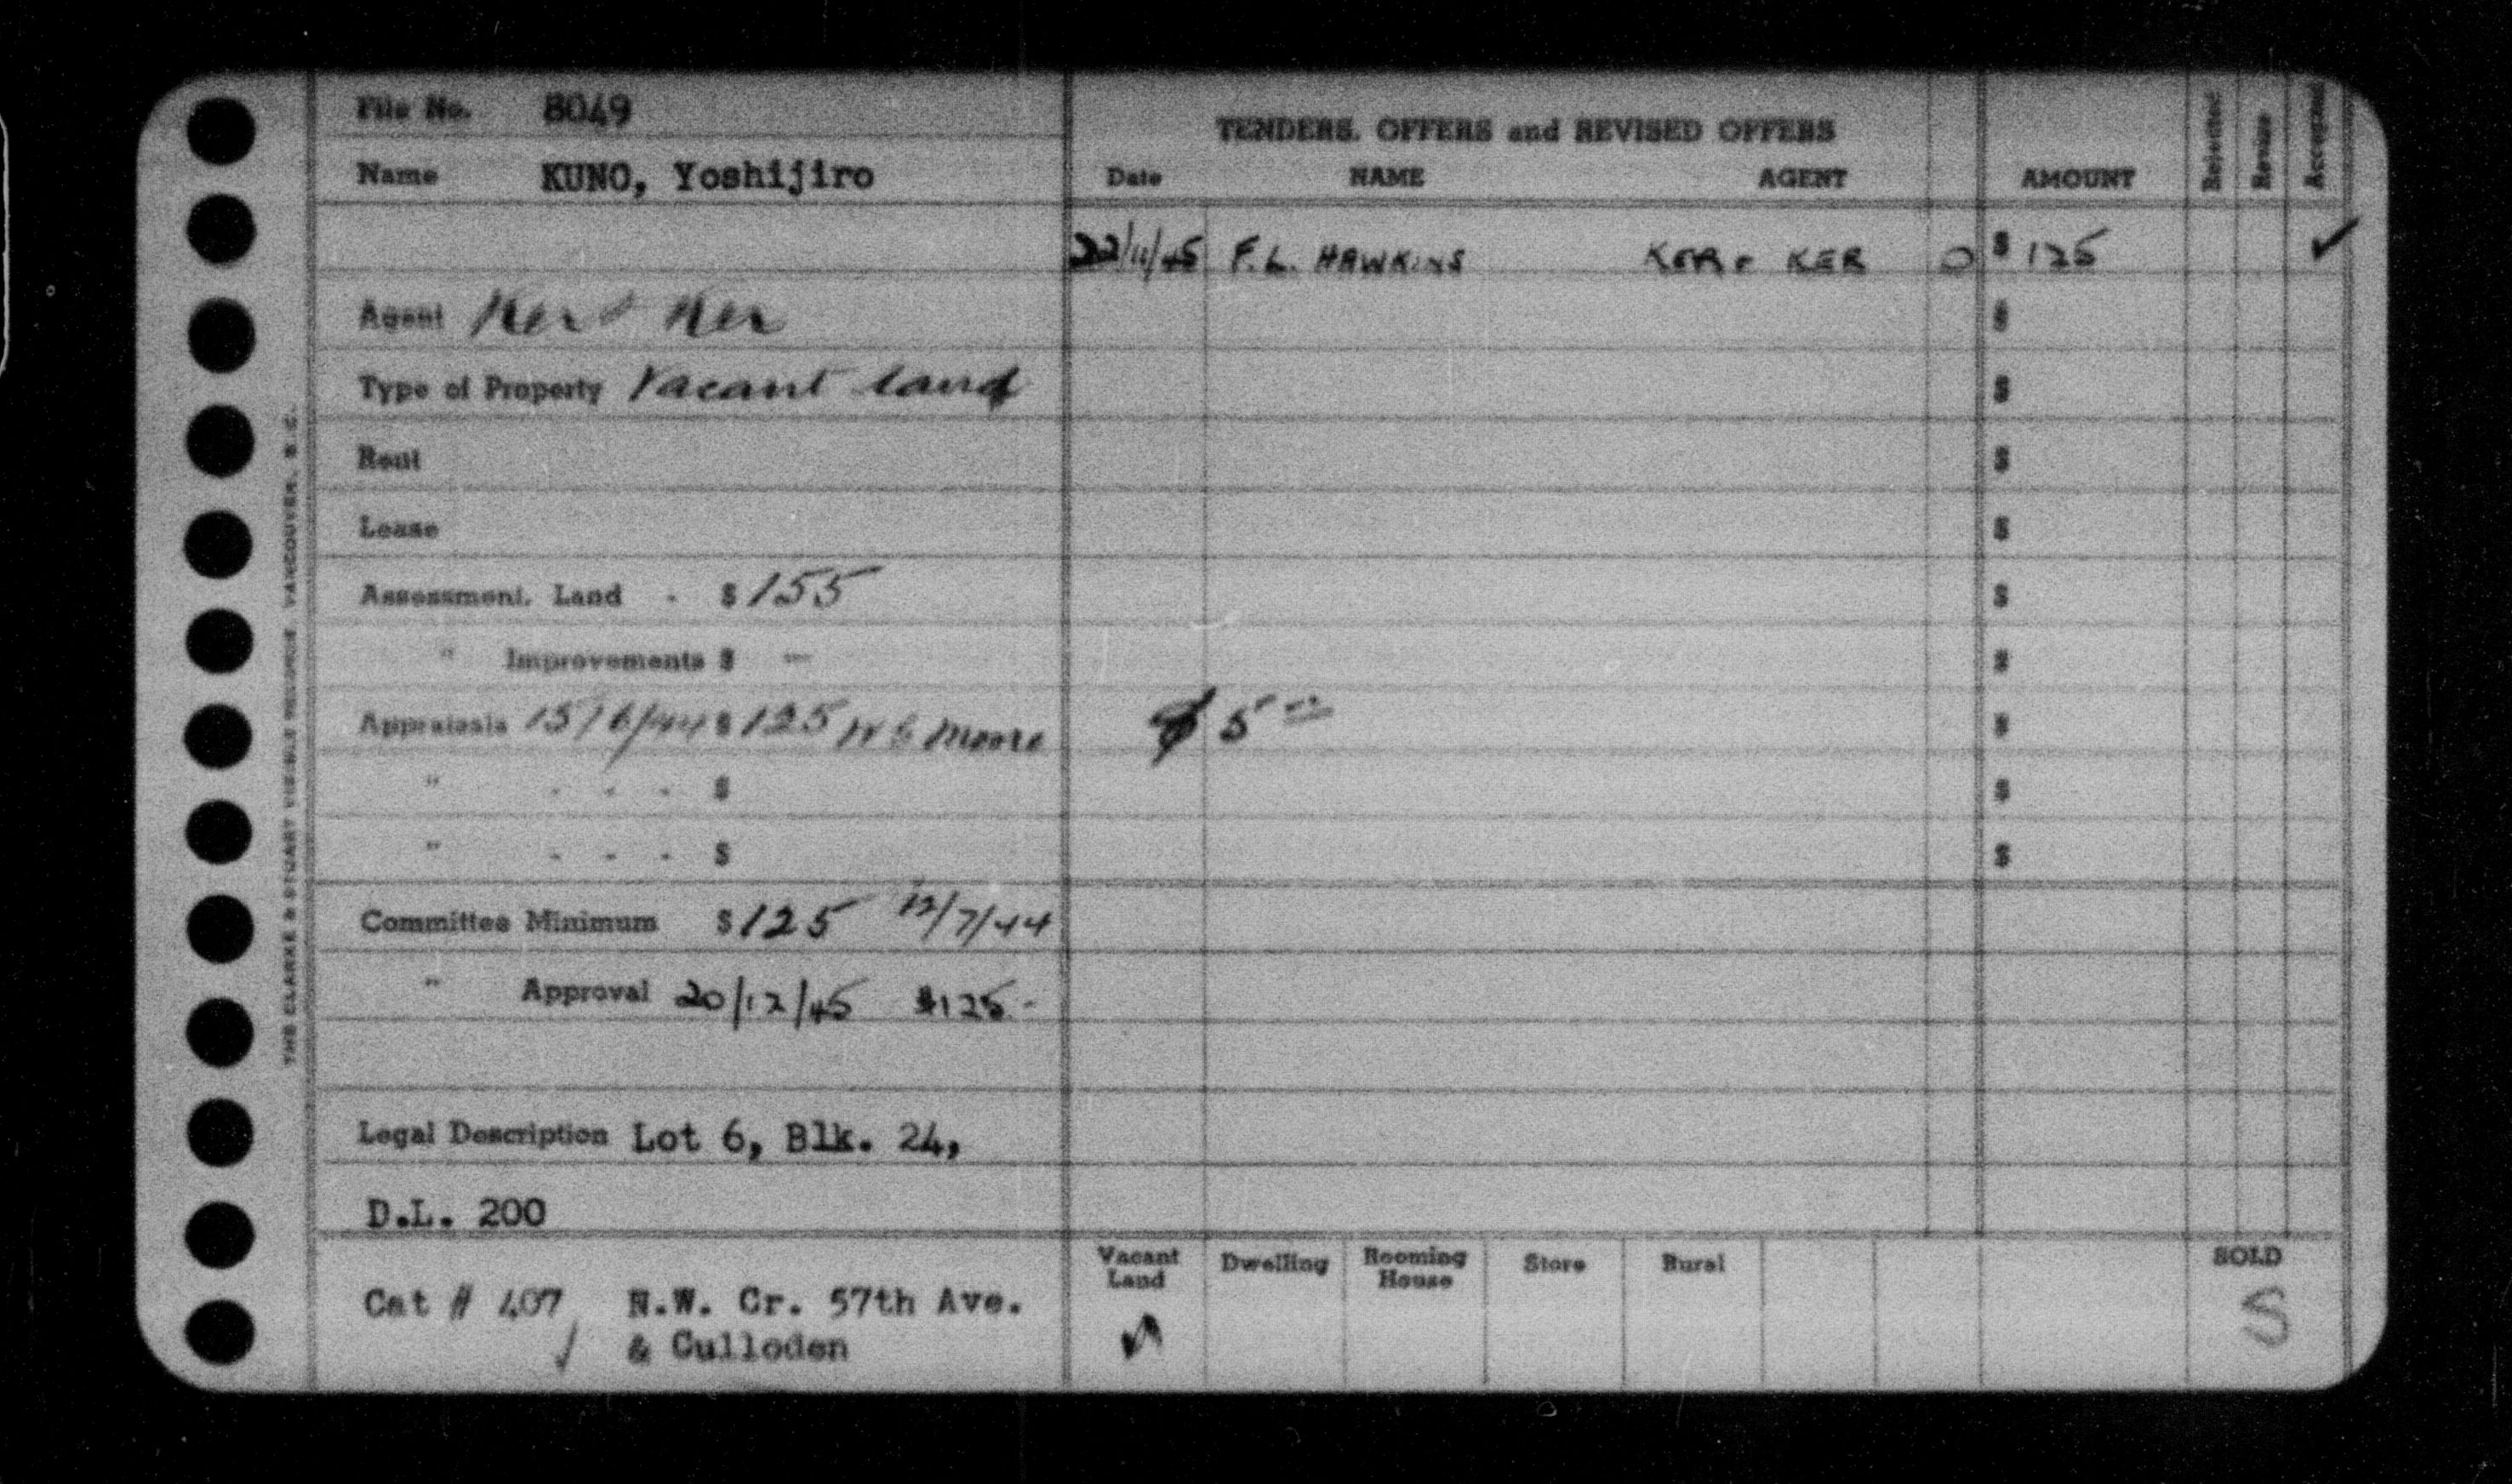 File No. 8049
Name KUNO, Yoshijiro
Agent Ker & Ker
Type of Property Vacant land
Rent
Lease
Assessment. Land - $ 155
" Improvements $ —
Appraisals 15/6/44 $ 125 W G Moore
" - - - $
" - - - $
Committee Minimum $ 125 12/7/44
" Approval 20/12/45 $125.-
Legal Description Lot 6, Blk. 24,
D.L. 200
Cat # 407 N.W. Cr. 57th Ave.
✓ & Culloden
THE CLARKE & STUART VISIBLE RECORDS. VANCOUVER, B.C.
TENDERS. OFFERS and REVISED OFFERS
Date NAME AGENT AMOUNT Rejected Revise Accepted
22/11/45 F.L. HAWKINS KER & KER O $ 125 ✓
$
$
$
$
$
$
$ 5 $
$
$
Vacant Land Dwelling Rooming House Store Rural SOLD
S